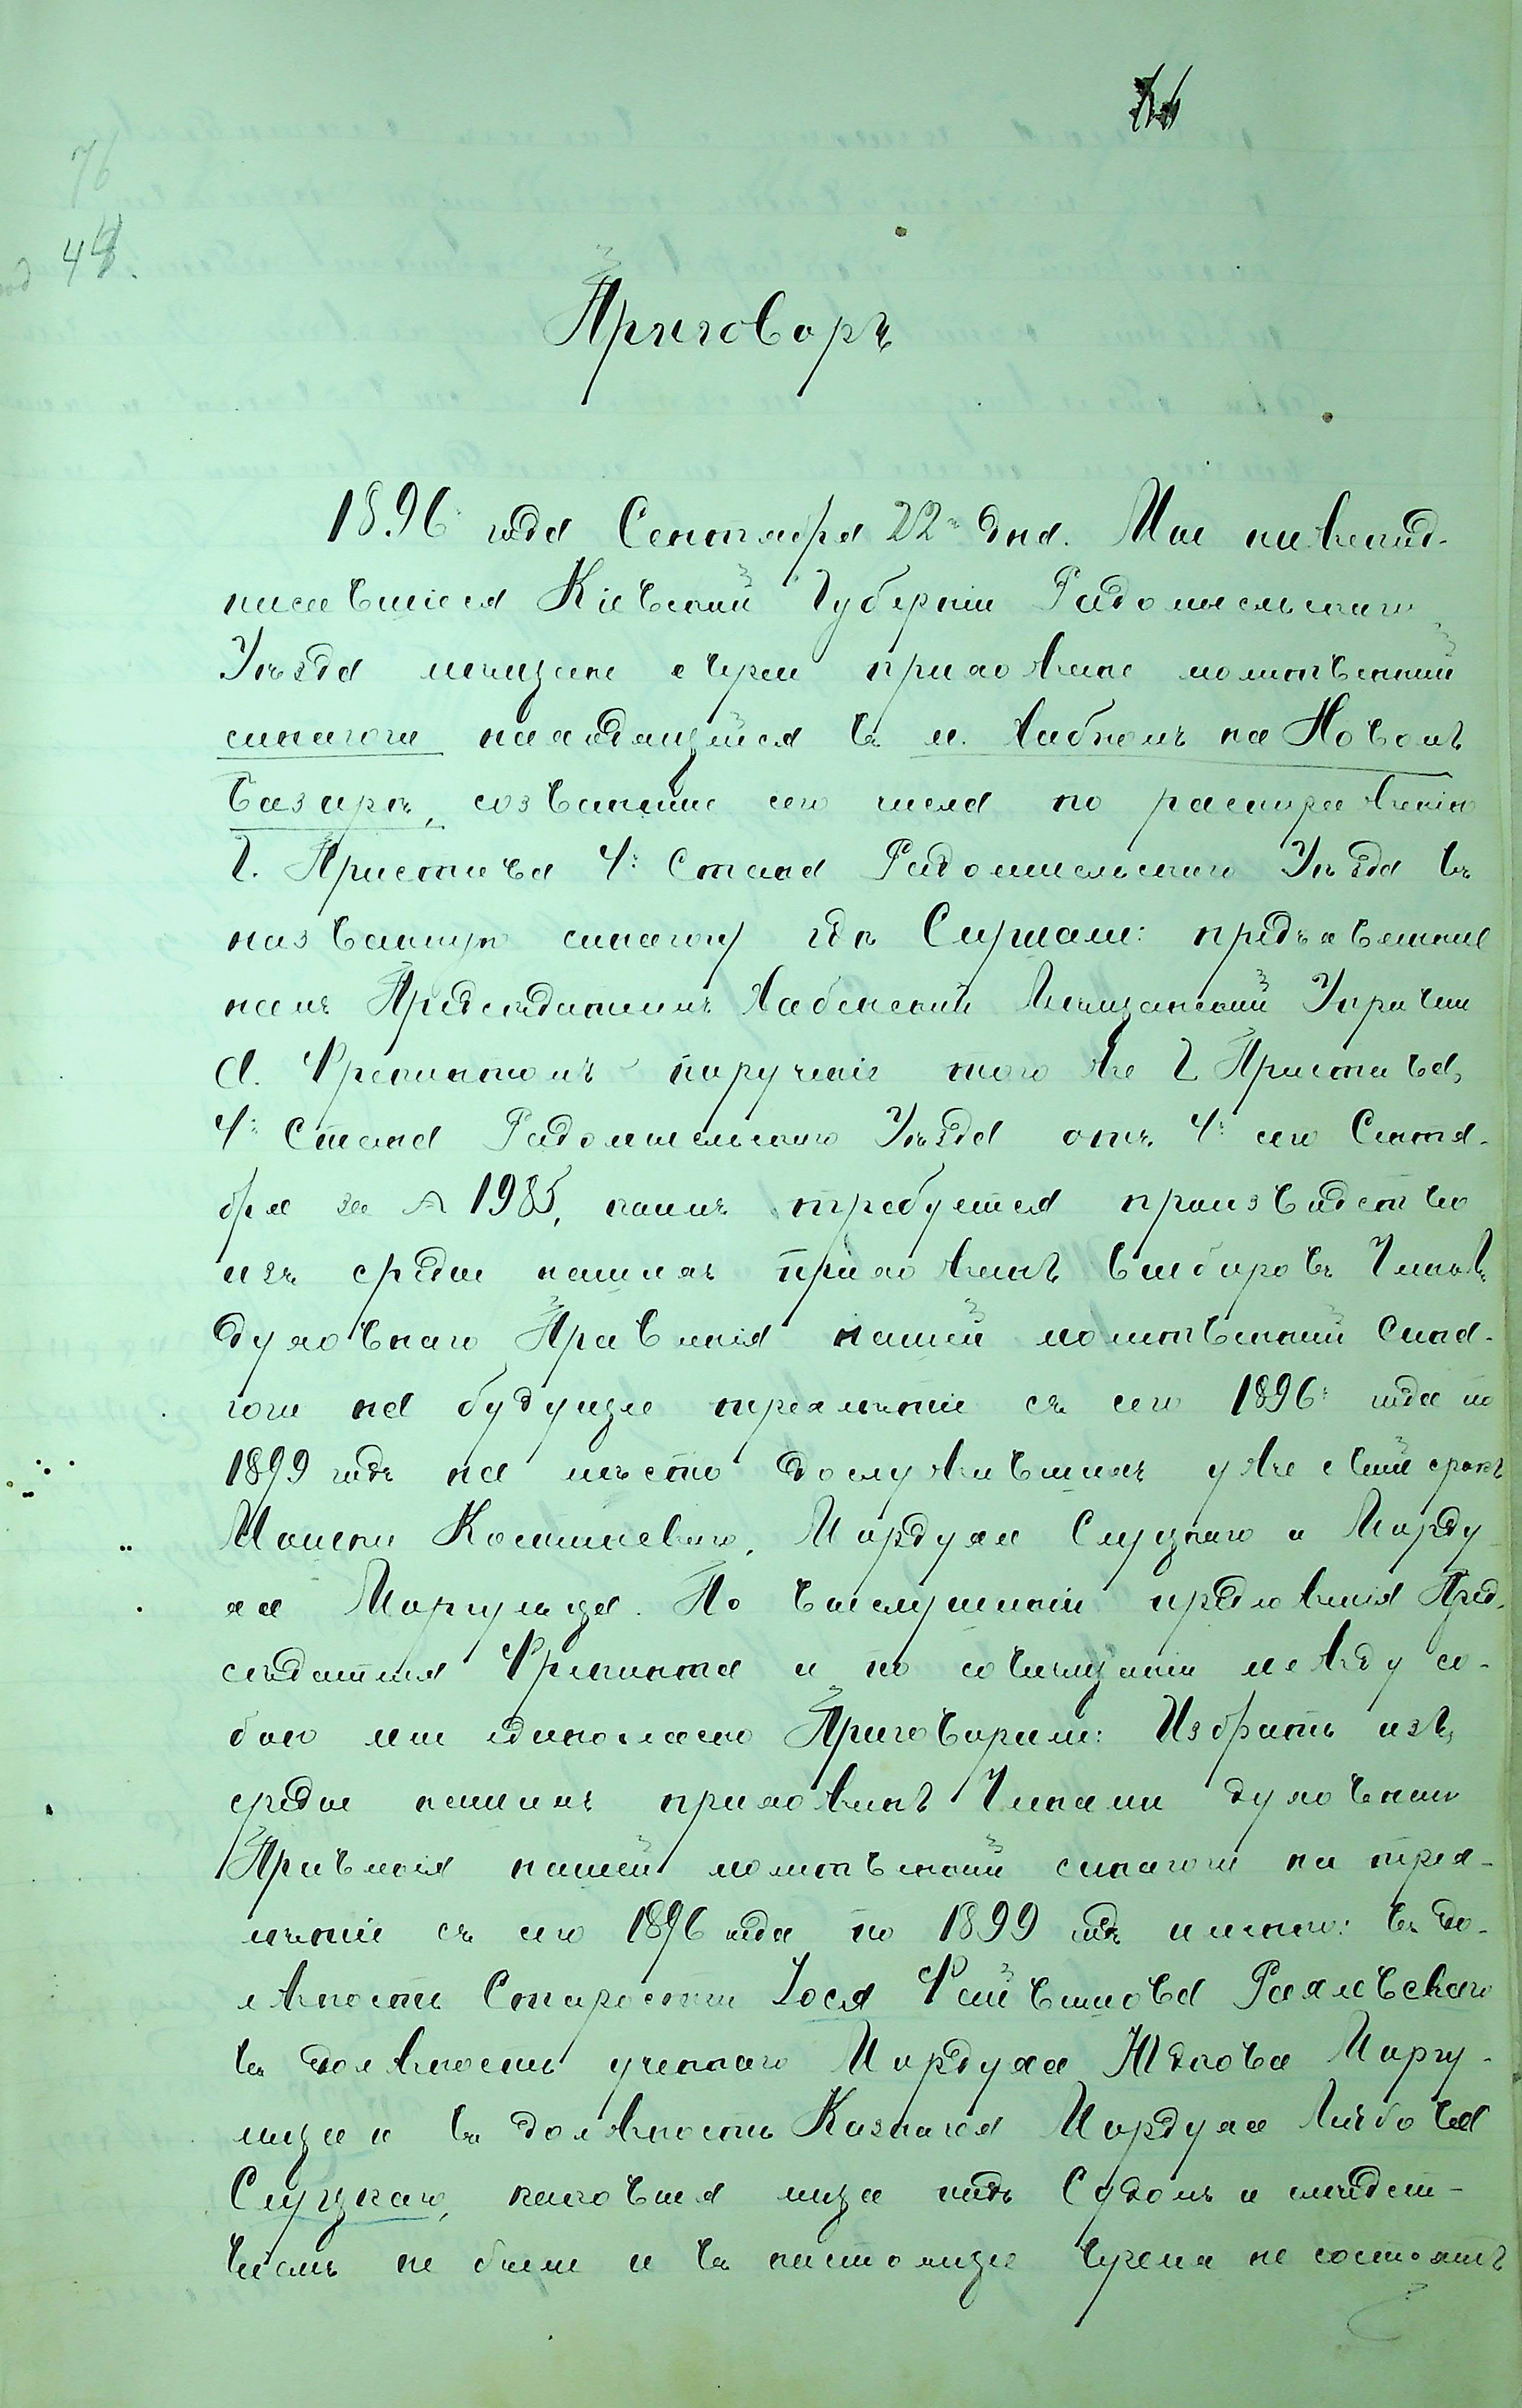 76
48.
Приговоръ
1896 года Сентября 22 дня. Мы нижепод-
писавшіеся Кіевской Губерніи Радомысльскаго
Уѣзда мещане евреи прихожане молитвенной
синагоги находящейся въ м. Хабномъ на Новомъ
базарѣ, созванные сего числа по распоряженію
Г. Пристава 4: Стана Радомысльскаго Уѣзда въ
названную синагогу гдѣ Слушали: предъявленное
намъ Предсѣдателемъ Хабенской Мещанской Управы
А. Френкелемъ порученіе того же Г Пристава,
4: Стана Радомысльскаго Уѣзда отъ 4: сего Сентя-
бря за № 1985, коимъ требуется произведство
изъ среды нашихъ прихожанъ выборовъ Членовъ
духовнаго Правленія нашей молитвенной Сина-
гоги на будущее трехлѣтіе съ сего 1896: года по
1899 годъ на мѣсто дослужившихъ уже свой срокъ
Мордуха Слуцкаго и Морду
ха Маргулиса. По выслушаніи предложенія Пред-
сѣдателя и по совѣщаніи между со-
бою мы единогласно Приговорили: Избрать изъ
среды нашихъ прихожанъ Членами духовнаго
Правленія нашей молитвенной синагоги на трех-
лѣтіе съ сего 1896 года по 1899 годъ именно: въ до-
лжность Старосты Іося Файвишова
въ должность ученаго Мордуха Юдкова Маргу-
лиса и въ должность Казначея Мордуха Лейбова
Слуцкаго, каковыя лица подъ Судомъ и слѣдст-
віемъ не были и въ настоящее время не состоятъ